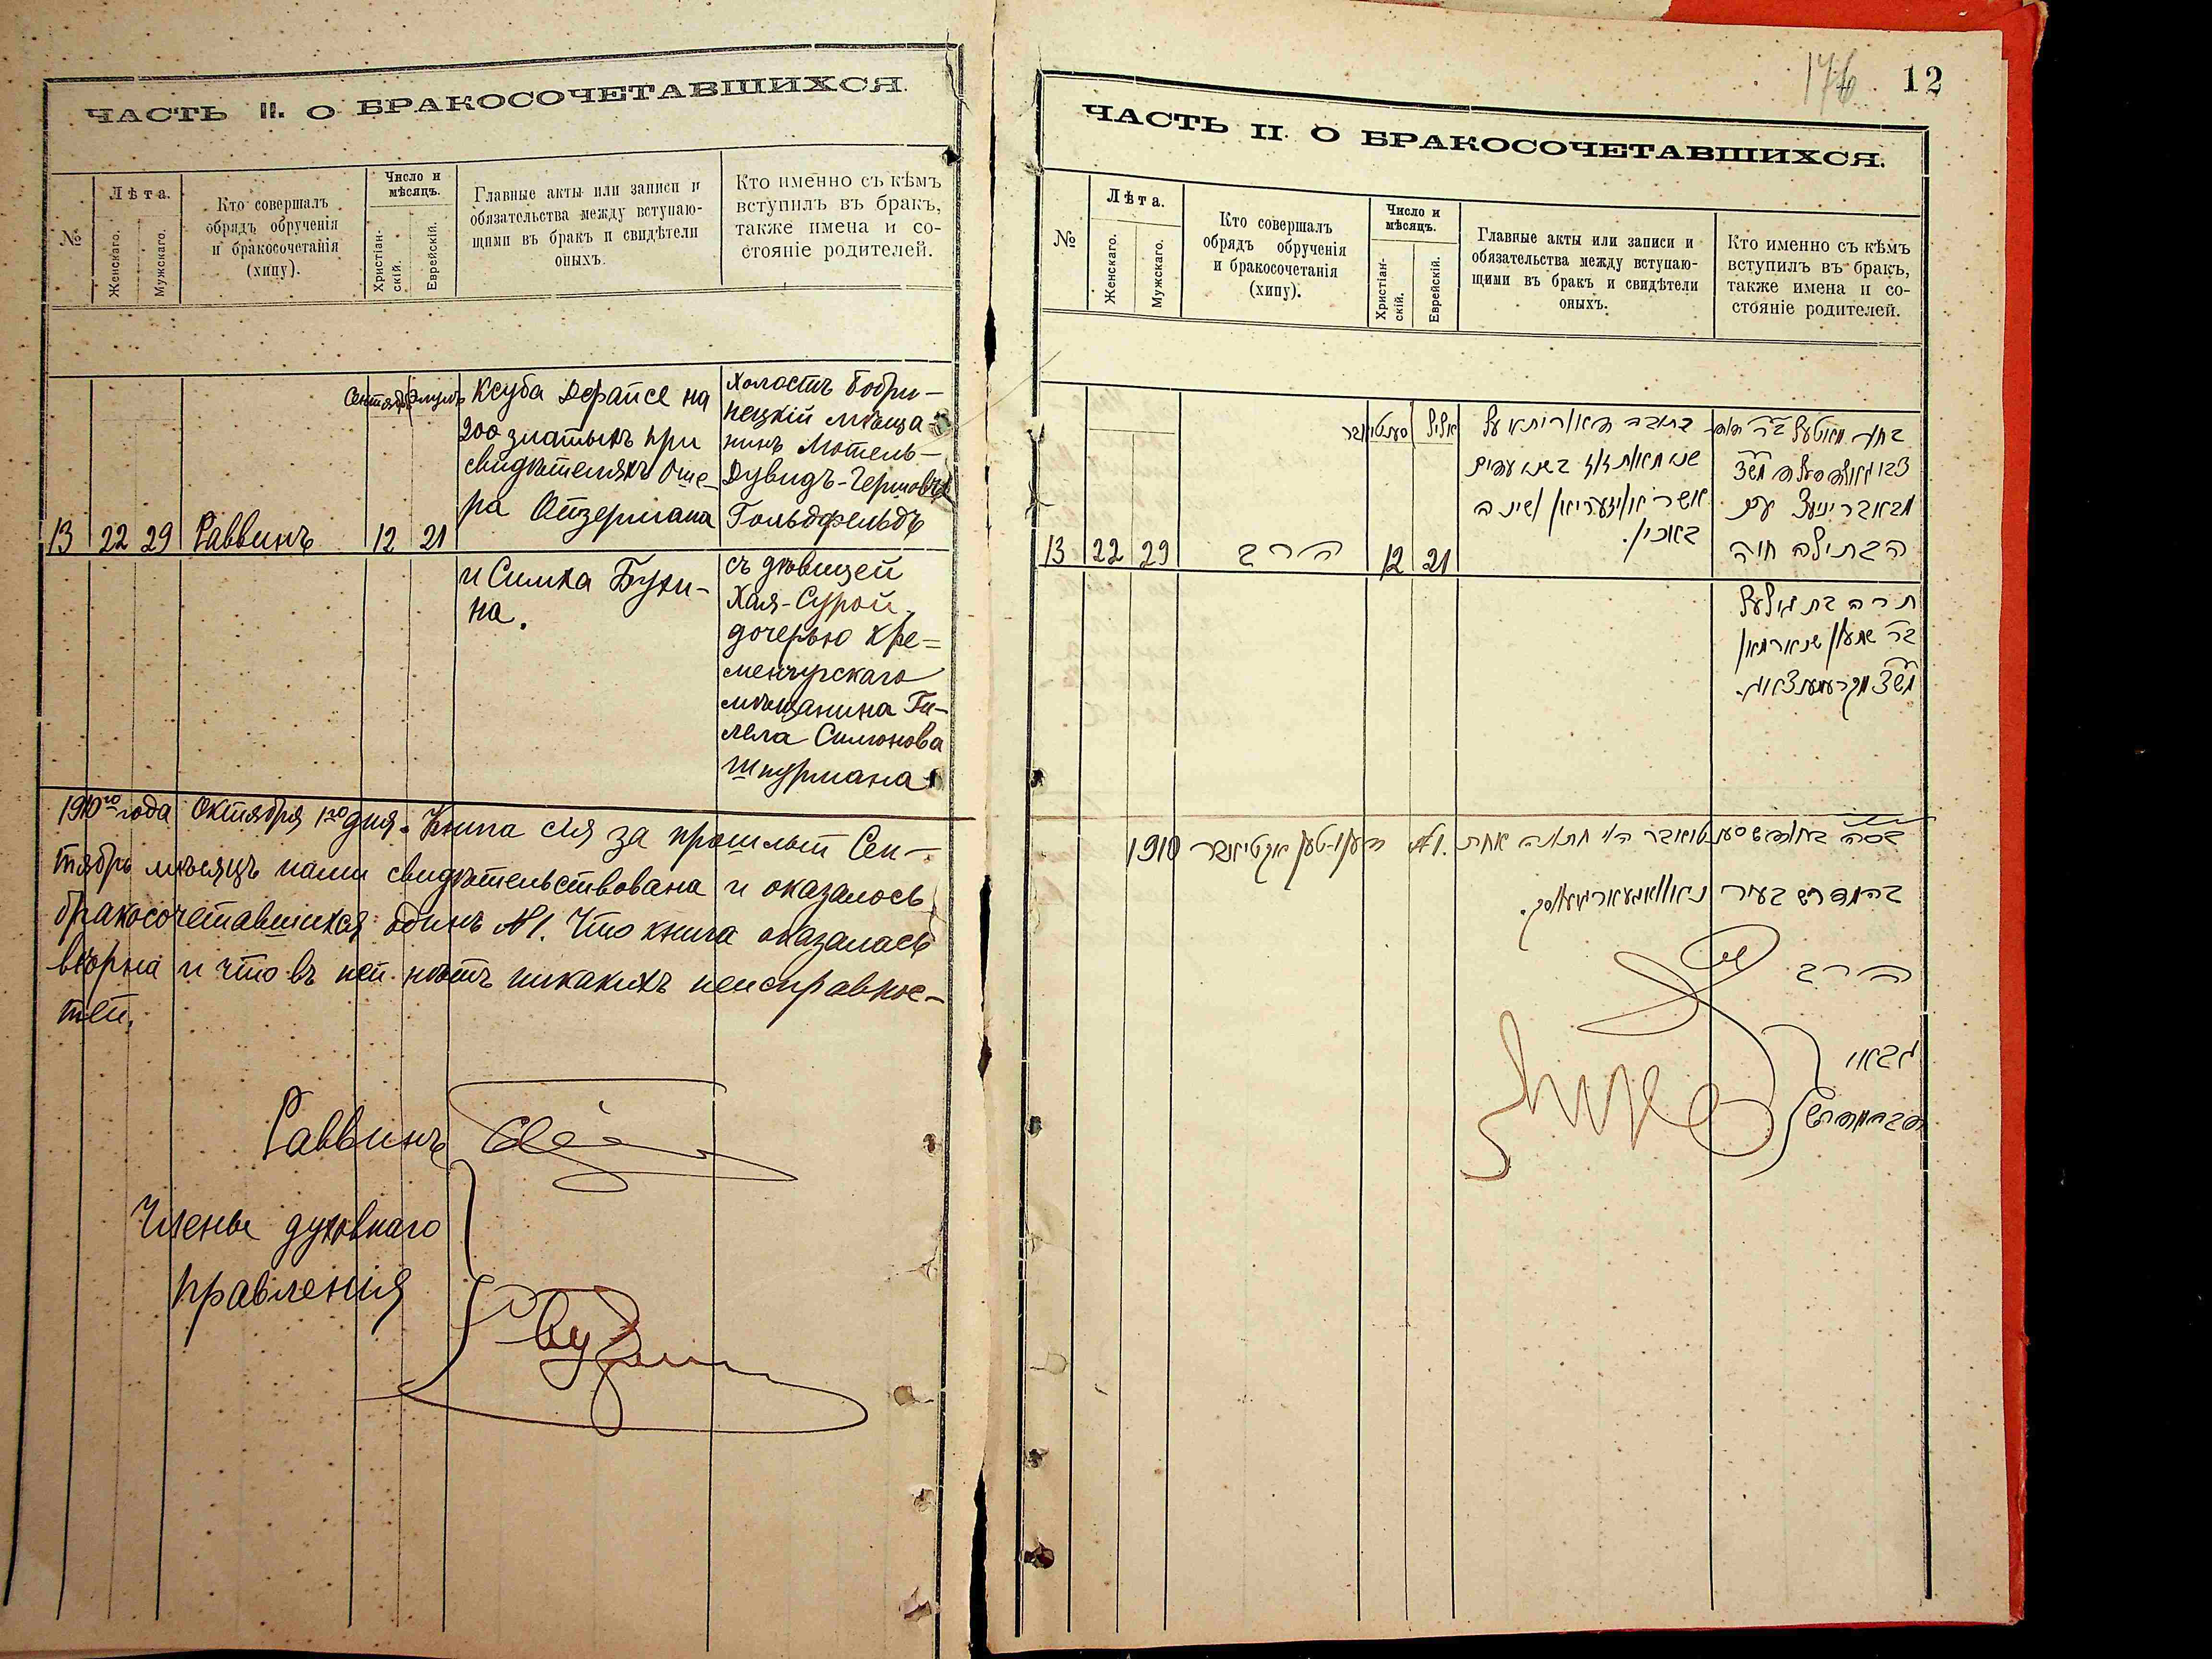 ЧАСТЬ II. О БРАКОСОЧЕТАВШИХСЯ.
№
Лѣта.
Женскаго.
Мужскаго.
Кто совершалъ
обрядъ обрученія
и бракосочетанія
(хипу).
Число и
мѣсяцъ.
Христіан-
скій.
Еврейскій.
Главные акты или записи и
обязательства между вступаю-
щими въ бракъ и свидѣтели
оныхъ.
Кто именно съ кѣмъ
вступилъ въ бракъ,
также имена и со-
стояніе родителей.
13
22
29
Раввинъ
Сентябрь
12
Элулъ
21
Ксуба Дерайсе на
200 златыхъ при
свидѣтеляхъ Оше-
ра Ойзермана
и Симха Буки-
на.
Холостъ Бобри-
нецкій мѣща-
нинъ Мотель-
Дувидъ-Гершовъ
Гольдфельдъ
съ дѣвицей
Хая-Сурой
дочерью кре-
менчугскаго
мѣщанина Ги-
лела Симонова
Шпурмана
1910го года Октября 1го дня. Книга сія за прошлый Сен-
тябрь мѣсяцъ нами свидѣтельствована и оказалось
бракосочетавшихся одинъ №1. Что книга оказалась
вѣрна и что въ ней нѣтъ никакихъ неисправнос-
тей.
Раввинъ
Члены духовнаго
правленія
176
12
ЧАСТЬ II О БРАКОСОЧЕТАВШИХСЯ.
№
Лѣта.
Женскаго.
Мужскаго.
Кто совершалъ
обрядъ обрученія
и бракосочетанія
(хипу).
Число и
мѣсяцъ.
Христіан-
скій.
Еврейскій.
Главные акты или записи и
обязательства между вступаю-
щими въ бракъ и свидѣтели
оныхъ.
Кто именно съ кѣмъ
вступилъ въ бракъ,
также имена и со-
стояніе родителей.
13
22
29
הרב
12
אלול
21
כתובה דאוריתא על
אשר
בחור מאטעל בר
עם
הבתולה חיה
שרה בת הילעל
בר שמעון
1910
בחודש סעפטיאבר הי' חתונה אחת №1.
הרב
גבאי